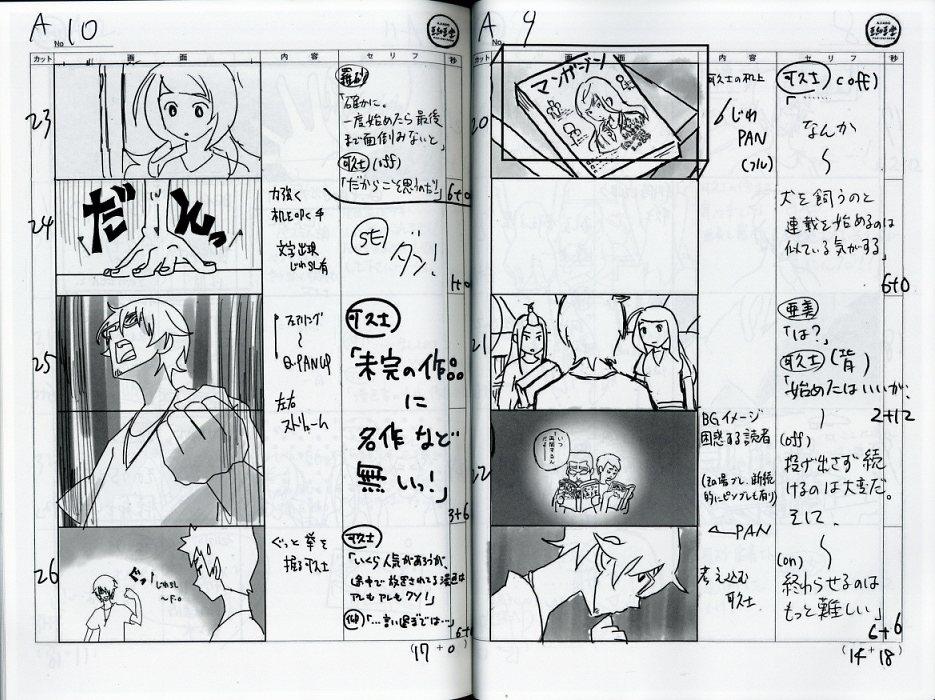 A 9
No.
カット
画 面
内 容
セリフ
秒
20
マンガジン
可久士の机上
じわ
PAN
(フル)
可久士 (off)
「……
なんか
犬を飼うのと
連載を始めるのは
似ている気がする」
6+0
21
亜美
「は?」
可久士 (背)
「始めたはいいが、
2+12
22
いつ
再開するん
だよ…
BGイメージ
困惑する読者
PAN
考え込む
可久士
(off)
投げ出さず続
けるのは大変だ。
そして、
(on)
終わらせるのは
もっと難しい」
6+6
(14+18)
A 10
No
カット
画 面
内 容
セリフ
秒
23
羅砂
「確かに。
一度始めたら最後
まで面倒みないと」
可久士 (off)
「だからこそ思うのだ」
6+0
24
だんっ
力強く
机を叩く手
文字出現
じわSL有
SE
ダン!
1+0
25
PAN UP
左右
ストリーム
可久士
「未完の作品
に
名作など
無しっ!」
3+6
26
ぐっ
じわSL
〜F.O
ぐっと拳を
握る可久士
可久士
「いくら人気があろうが、
途中で放置される漫画は
アレもアレもクソ!」
「…言い過ぎでは…」
6+
(17+0)